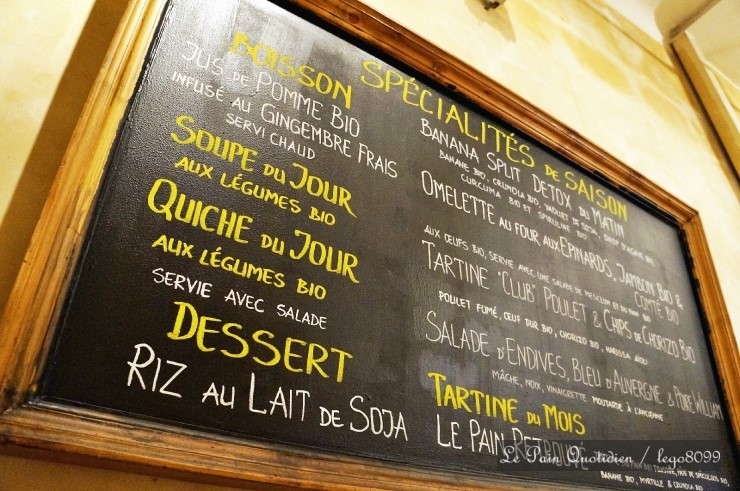 BOISSON
JUS DE POMME BIO
INFUSÉ AU GINGEMBRE FRAIS
SERVI CHAUD
SOUPE DU JOUR
AUX LÉGUMES BIO
QUICHE DU JOUR
AUX LÉGUMES BIO
SERVIE AVEC SALADE
DESSERT
RIZ AU LAIT DE SOJA
SPÉCIALITÉS DE SAISON
BANANA SPLIT DETOX DU MATIN
BANANE BIO, CRUMOLA BIO, YAOURT DE SOJA, SIROP D'AGAVE BIO
CURCUMA BIO ET SPIRULINE BIO
OMELETTE AU FOUR, AUX EPINARDS, JAMBON BIO &
COMTÉ BIO
AUX ŒUFS BIO, SERVIE AVEC UNE SALADE DE MESCLUN ET DU PAIN BIO
TARTINE "CLUB" POULET & CHIPS DE CHORIZO BIO
POULET FUMÉ, ŒUF DUR BIO, CHORIZO BIO, HARISSA AÏOLI
SALADE D'ENDIVES, BLEU D'AUVERGNE & POIRE WILLIAM
MÂCHE, NOIX, VINAIGRETTE MOUTARDE À L'ANCIENNE
TARTINE DU MOIS
LE PAIN RETROUVÉ
PÂTE DE SPÉCULOOS BIO,
BANANE BIO, MYRTILLE & CRUMOLA BIO
Le Pain Quotidien / lego8099